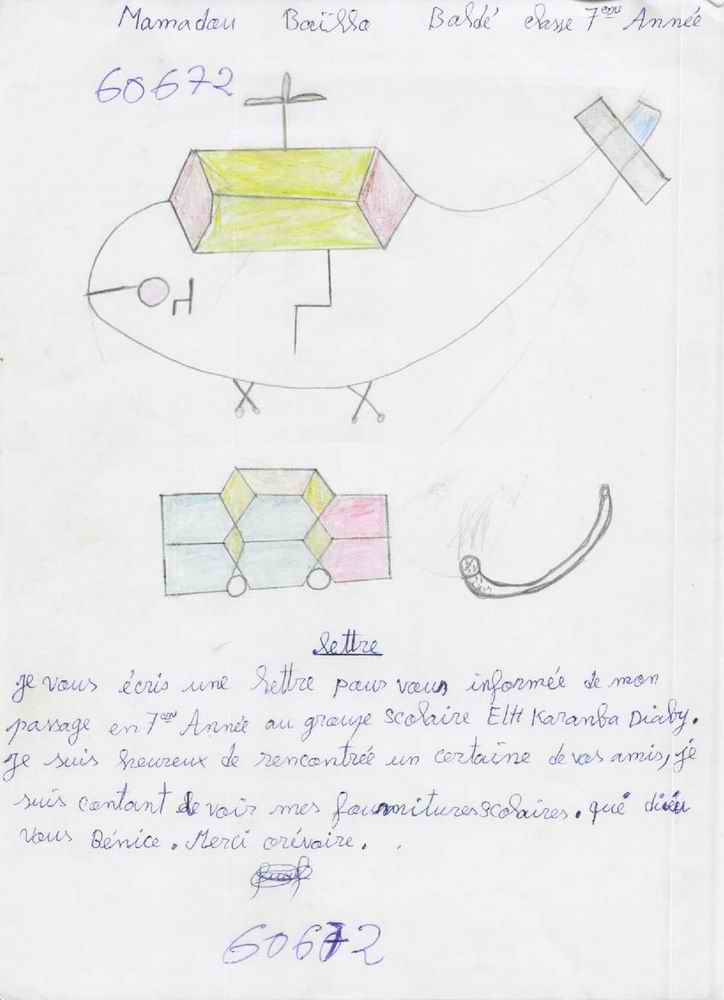 Mamadou Baïllo Baldé classe 7ème Année
60672
lettre
je vous écris une lettre pour vous informée de mon
passage en 7ème Année au groupe scolaire ElH Karanba Diaby.
Je suis heureux de rencontrée un certaine de vos amis, je
suis contant de voir mes fournitures scolaires. que dieu
vous Bénice. Merci orévoire.
60672